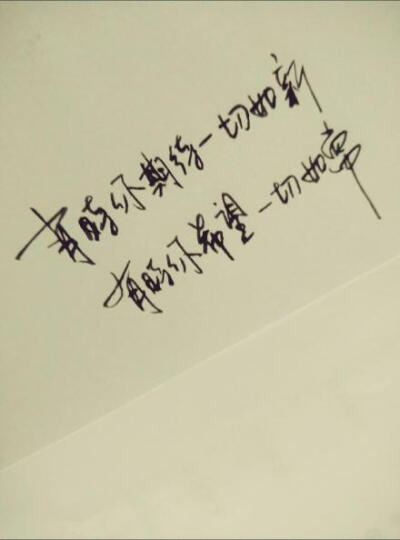 有时你期待一切如新
有时你希望一切如常